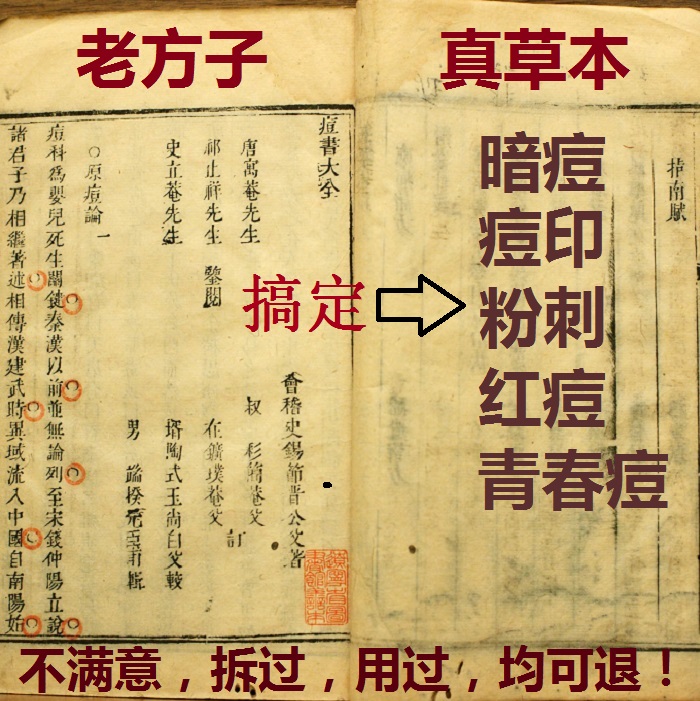 老方子
真草本
搞定
暗痘
痘印
粉刺
红痘
青春痘
不满意，拆过，用过，均可退！
指南賦
痘書大全
唐寓菴先生
祁止祥先生 鑒閱
史立菴先生
會稽史錫節晋公父著
叔 彩蘭菴父
在鑛璞菴父
訂
壻陶式玉尚白父較
男
輯
○原痘論一
痘科爲嬰兒死生關鍵秦漢以前並無論列至宋錢仲陽立說
諸君子乃相繼著述相傳漢建武時異域流入中國自南陽始